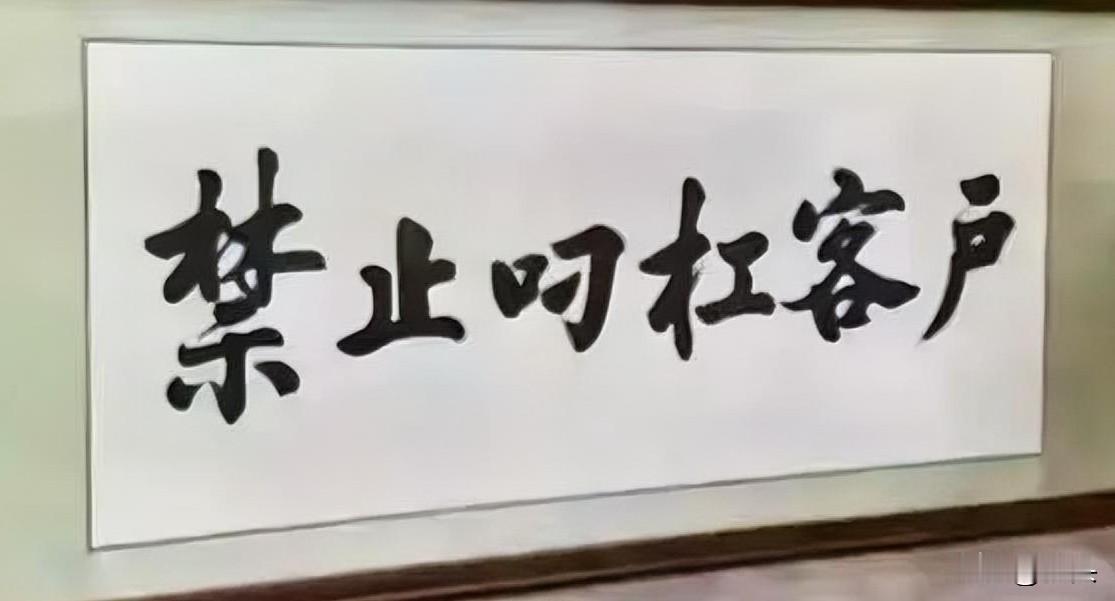 禁止叼杠客户